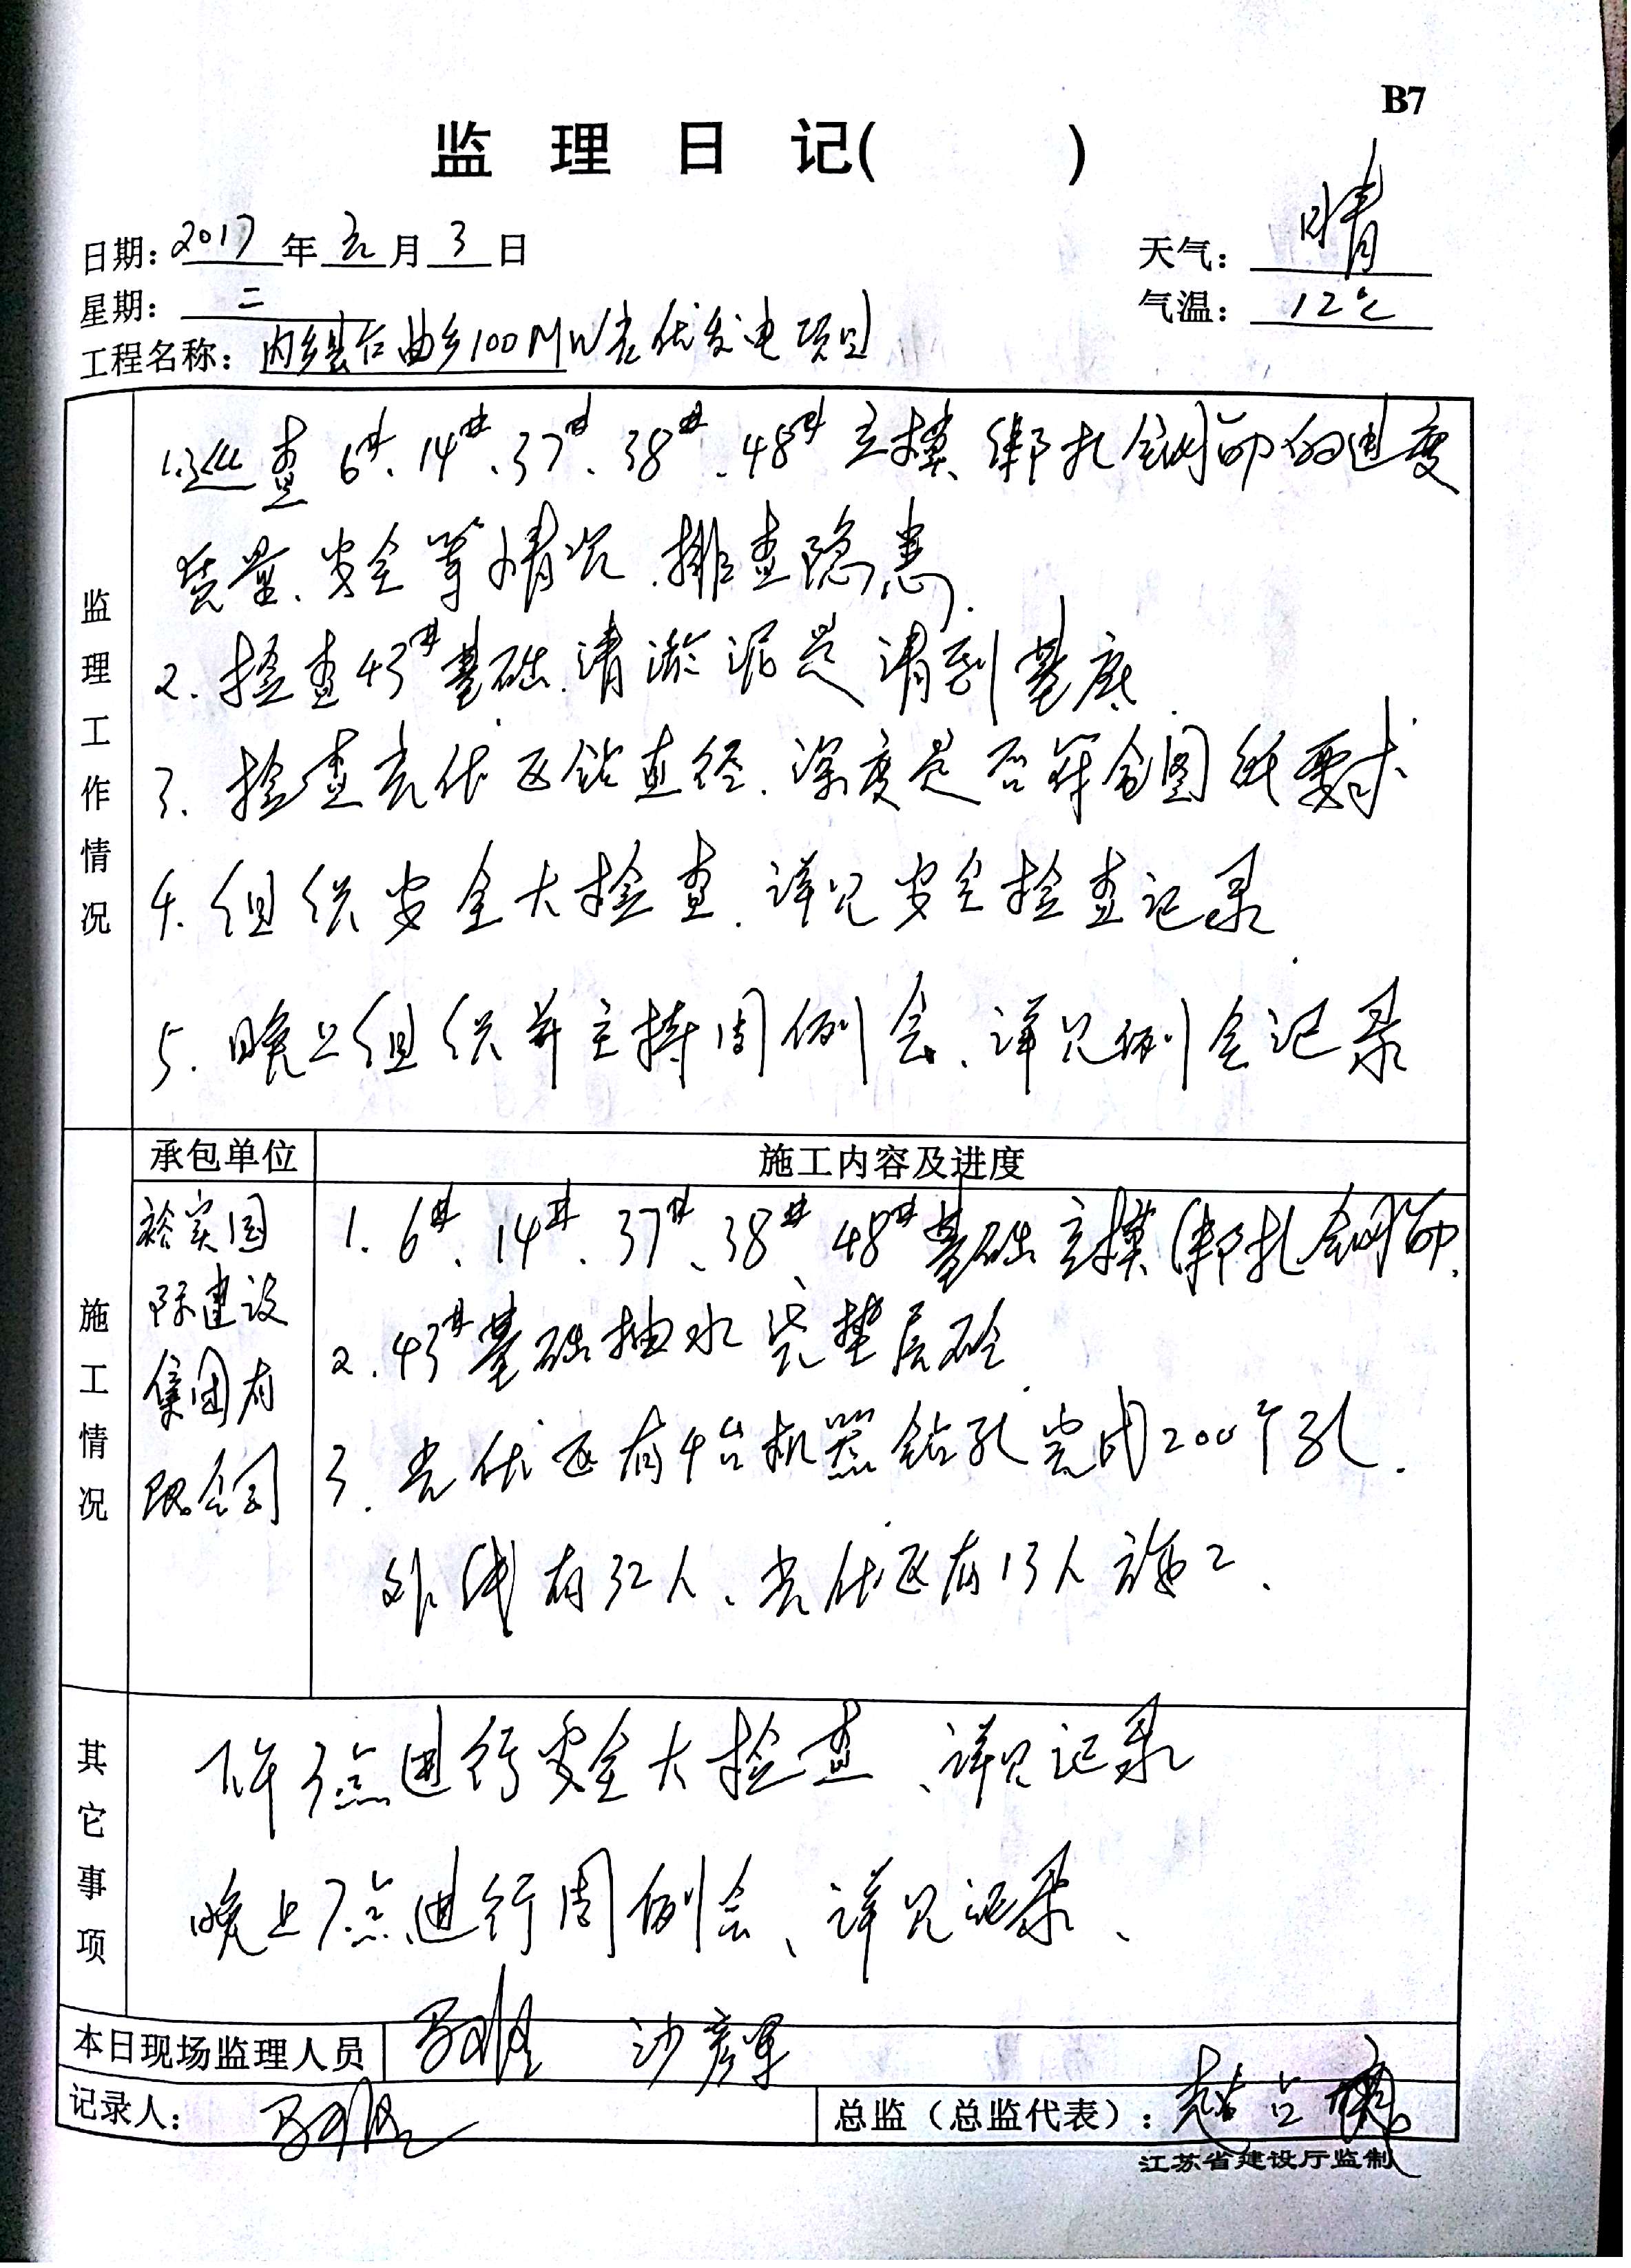 B7
监 理 日 记( )
日期: 2017 年 元 月 3 日
天气: 晴
星期: 二
气温: 12℃
工程名称: 内乡县乍曲乡100MW光伏发电项目
监理工作情况
1.巡查6#、14#、37#、38#、48#立模、绑扎钢筋的进度
质量、安全等情况、排查隐患.
2. 检查43#基础.清淤泥是清到基底.
3. 检查光伏区钻直径、深度是否符合图纸要求
4. 组织安全大检查.详见安全检查记录.
5. 晚上组织并主持周例会、详见例会记录
承包单位
施工内容及进度
施工情况
裕实国
际建设
集团有
限公司
1. 6#、14#、37#、38#、48#基础立模绑扎钢筋.
2. 43#基础抽水浇垫层砼.
3. 光伏区有4台机器钻孔完成200个孔.
外线有32人、光伏区有13人施工.
其它事项
下午3点进行安全大检查、详见记录
晚上7点进行周例会、详见记录、
本日现场监理人员 沙彦军
记录人:
总监（总监代表）: 赵
江苏省建设厅监制